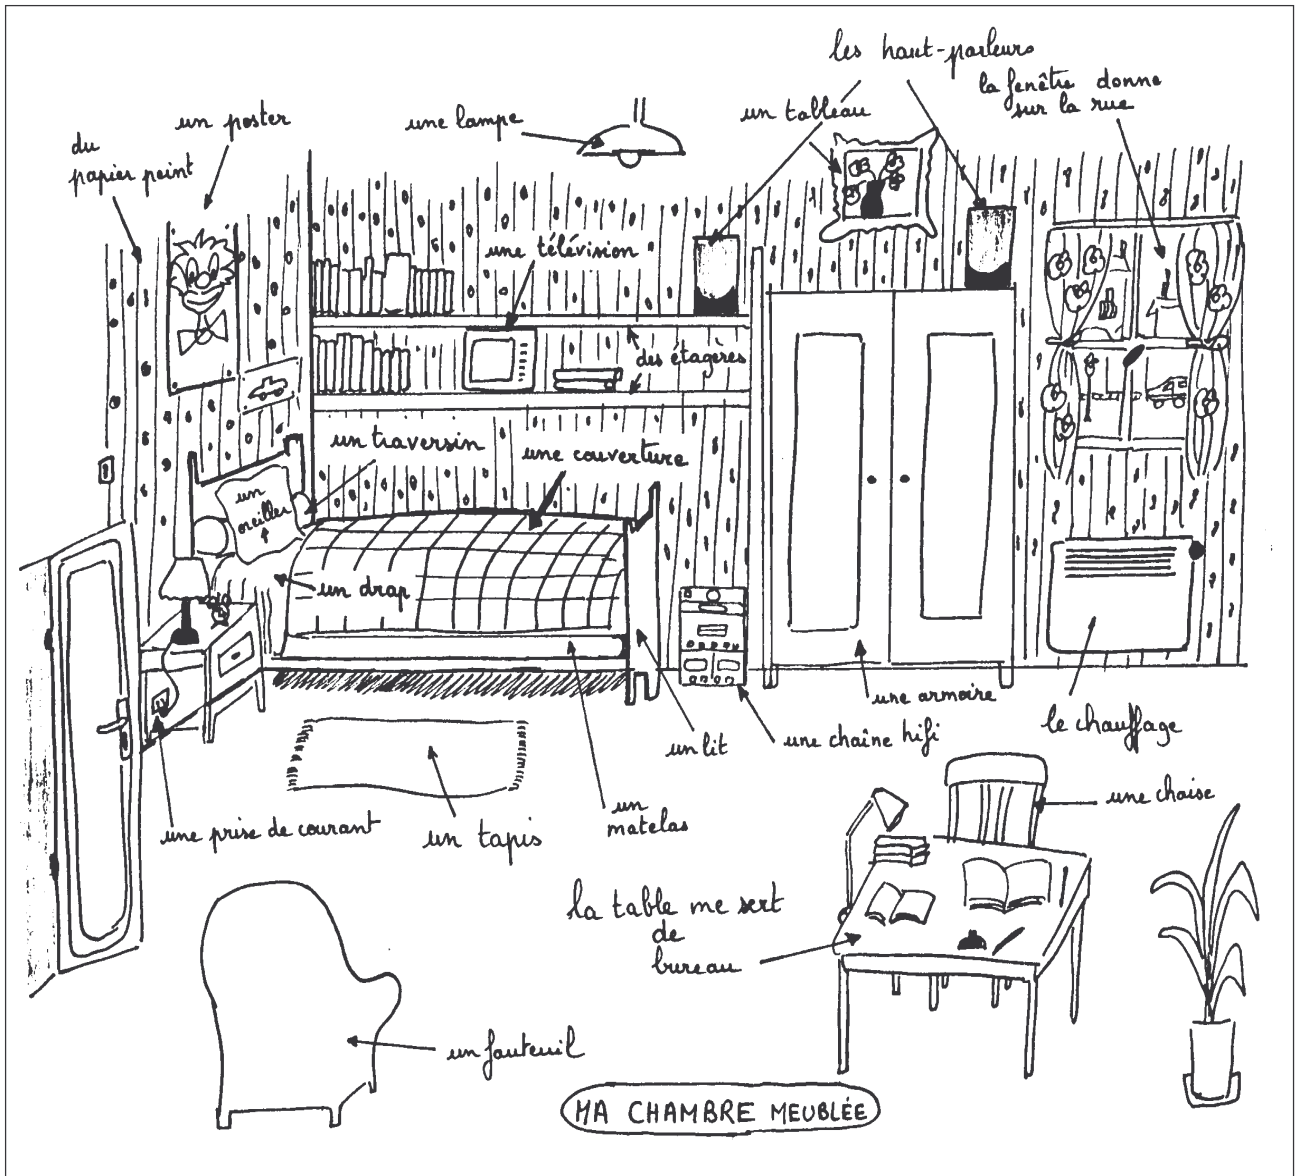 les haut-parleurs
la fenêtre donne
sur la rue
un tableau
une lampe
un poster
du
papier peint
une télévision
des étagères
un traversin
une couverture
un
oreiller
un drap
une armoire
le chauffage
une chaîne hifi
un lit
un
matelas
une prise de courant
un tapis
une chaise
la table me sert
de
bureau
un fauteuil
MA CHAMBRE MEUBLÉE